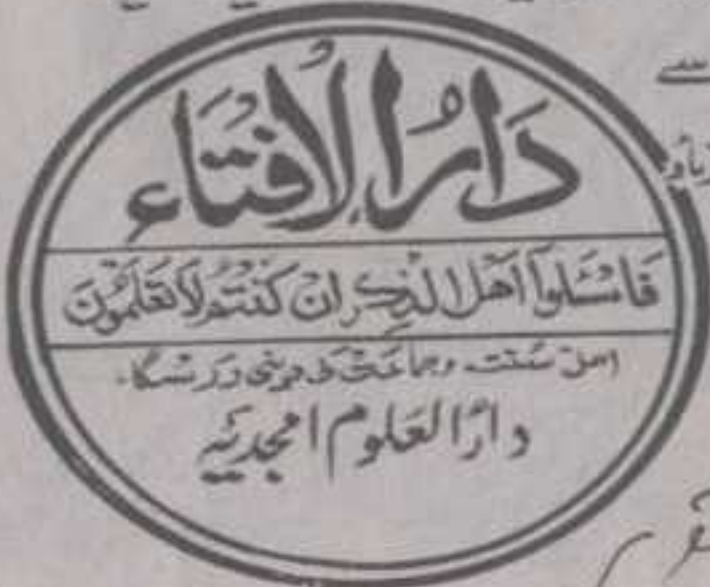 سے
دَارُ الْاِفْتَاء
فَاسْئَلُوْآ اَهْلَ الذِّكْرِ اِنْ كُنْتُمْ لَا تَعْلَمُوْنَ
اہل سُنّت وجماعت کی دینی درسگاہ
دارُ العلوم امجدیہ